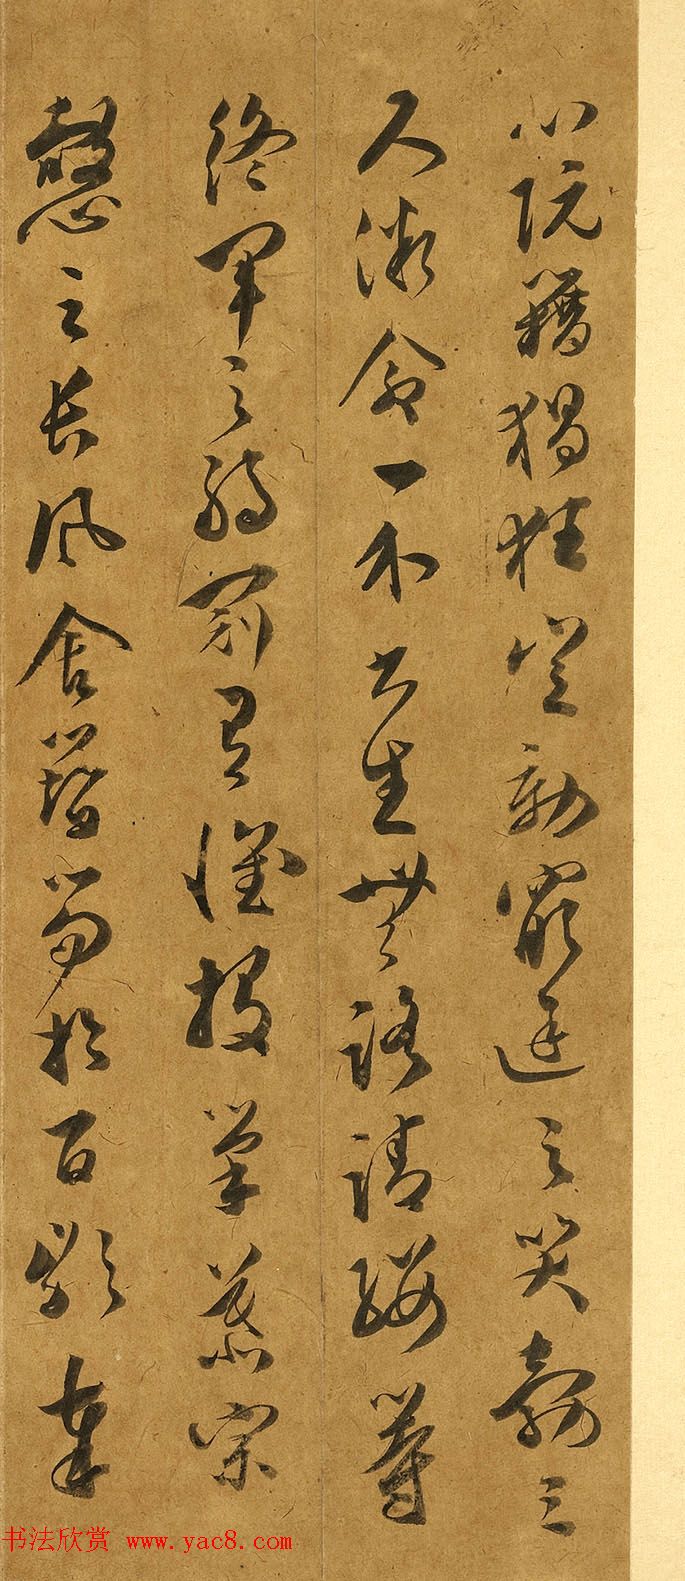 心阮籍猖狂豈効窮途之哭勃三
尺微命一介書生無路請纓等
終軍之弱冠有懷投筆慕宗
愨之長風舍簪笏於百齡奉
书法欣赏 www.yac8.com